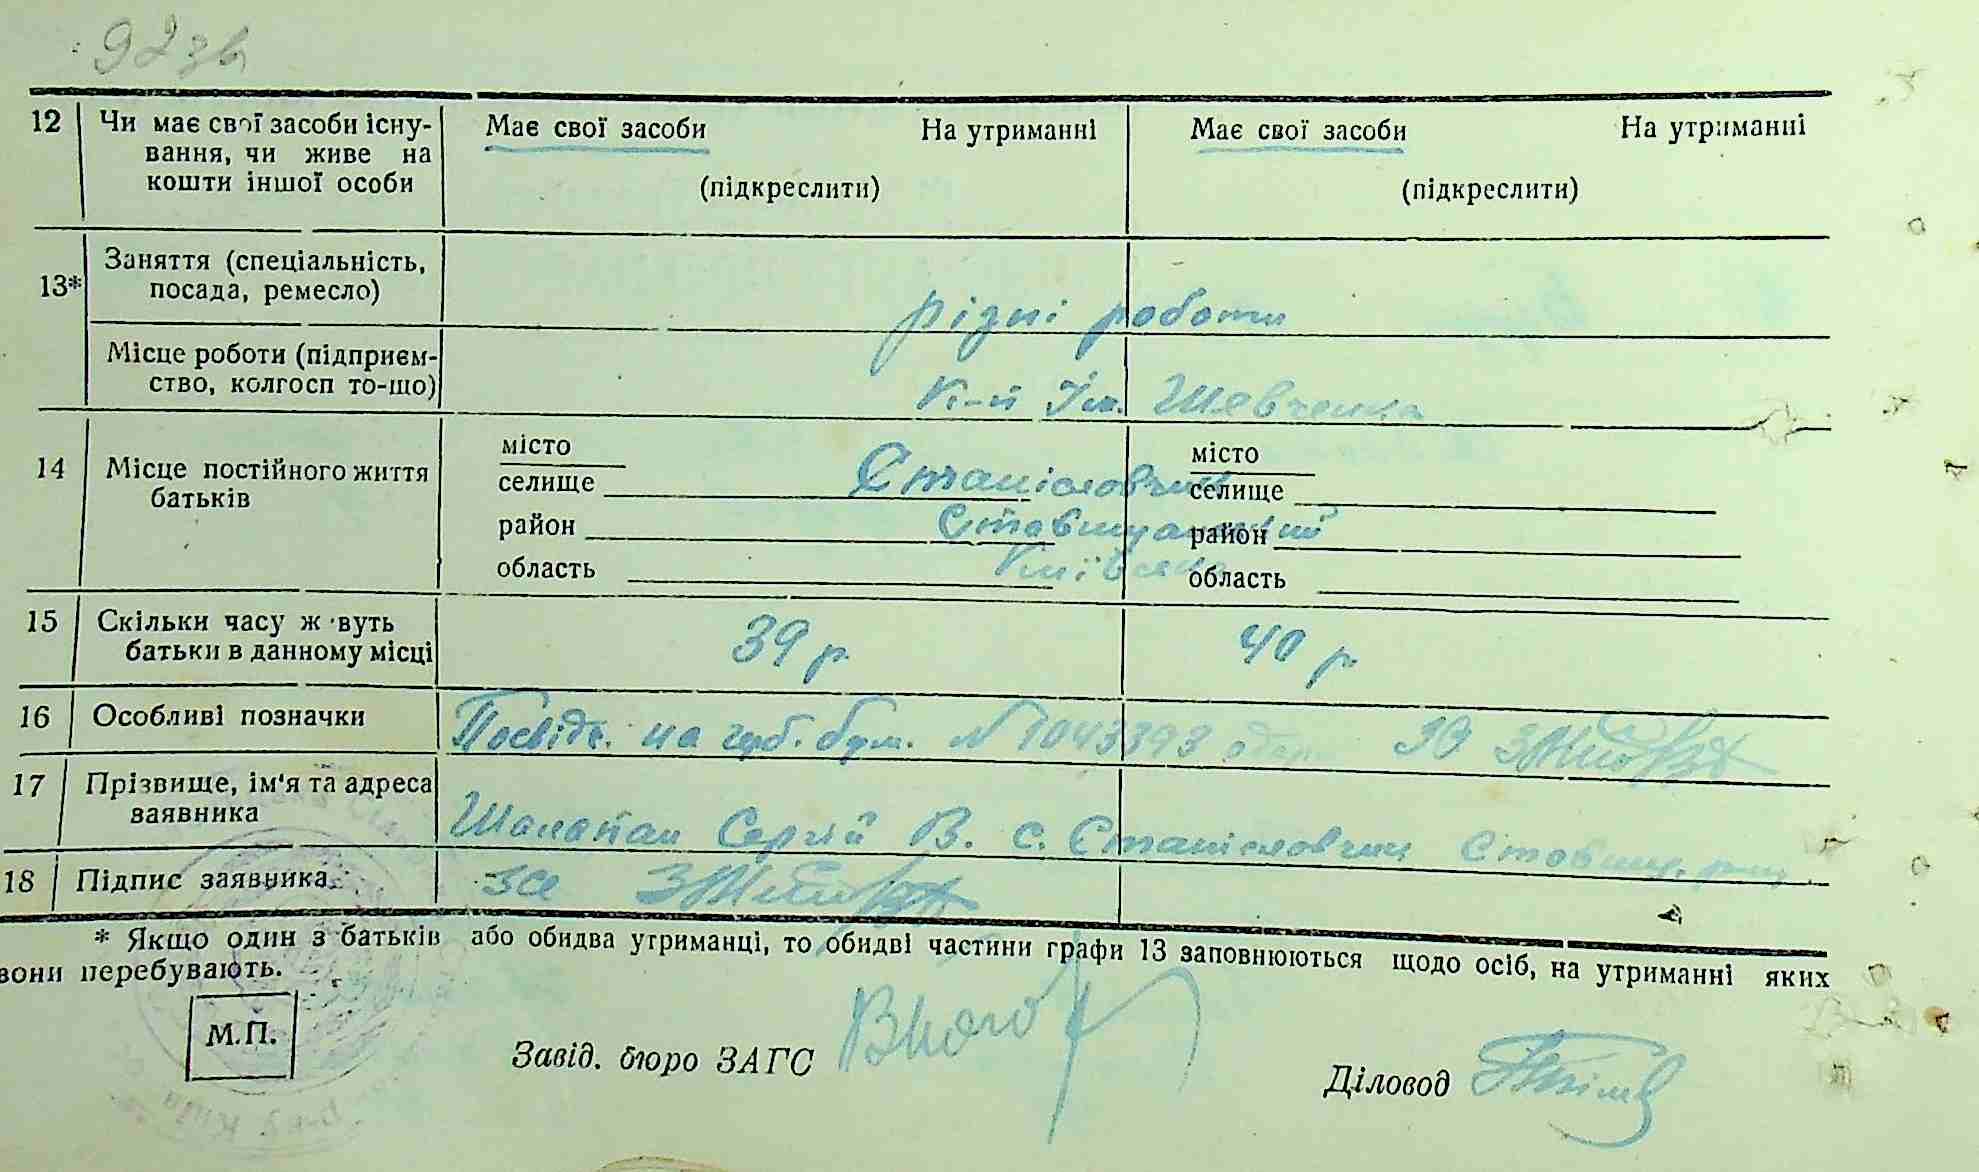 92 зв
12 Чи має свої засоби існу- Має свої засоби На утриманні Має свої засоби На утриманні
вання, чи живе на
кошти іншої особи (підкреслити) (підкреслити)
13* Заняття (спеціальність,
посада, ремесло) різні роботи
Місце роботи (підприєм-
ство, колгосп то-що) К-п Ім. Шевченка
14 Місце постійного життя
батьків
місто місто
селище Станіславчик селище
район Ставищанський район
область Київська область
15 Скільки часу ж вуть
батьки в данному місці 39 р 40 р
16 Особливі позначки Посвідч. на герб. бум. № 1043393 одерж. за
17 Прізвище, ім'я та адреса
заявника Сергій В. с. Станіславчик Ставищ. рну
18 Підпис заявника
* Якщо один з батьків або обидва утриманці, то обидві частини графи 13 заповнюються щодо осіб, на утриманні яких
вони перебувають.
М.П.
Завід. бюро ЗАГС
Діловод